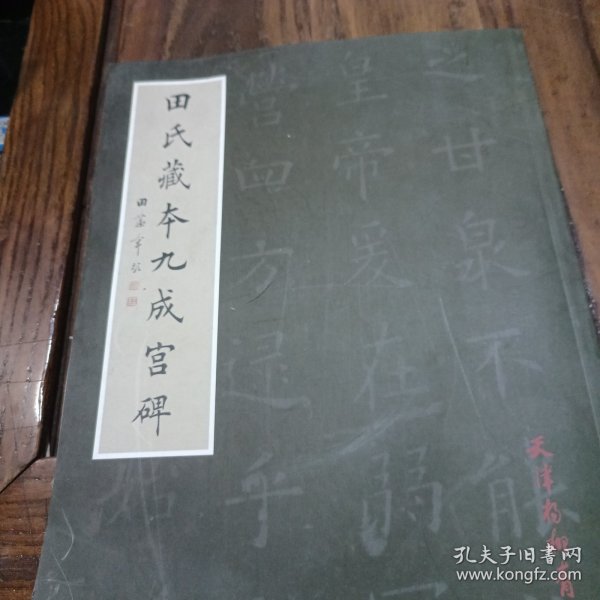 田氏藏本九成宫碑
田蕴章题
之甘泉不能
皇帝爰在弱
营四方逮乎
天津杨柳青
孔夫子旧书网
www.kongfz.com